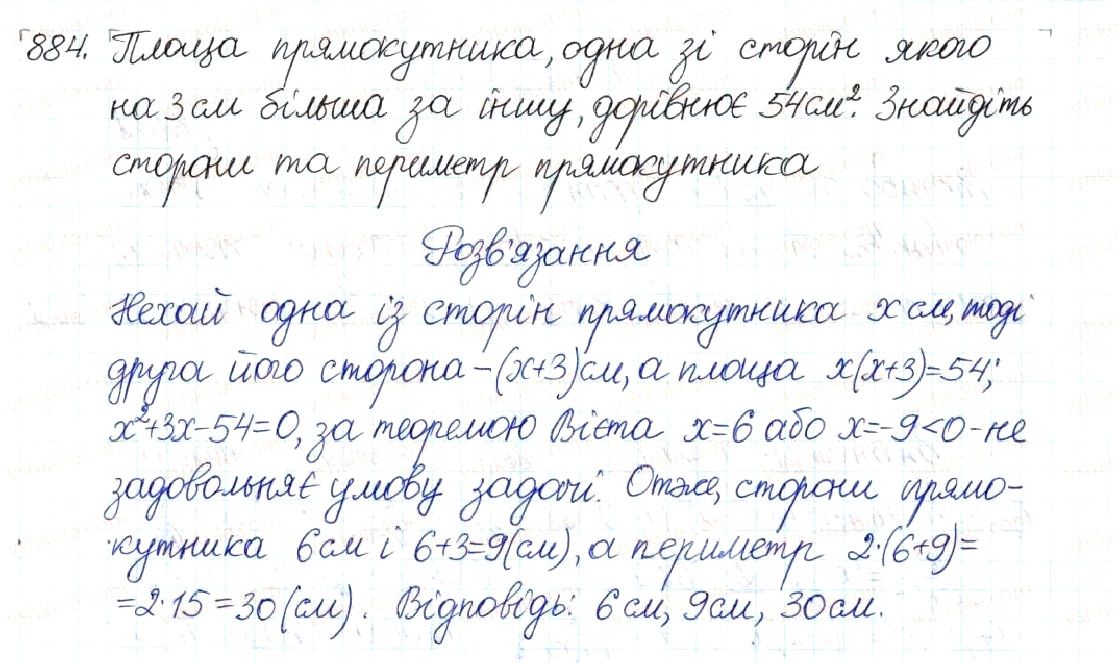 884. Площа прямокутника, одна зі сторін якого
на 3 см більша за іншу, дорівнює 54 см². Знайдіть
сторони та периметр прямокутника
Розв'язання
Нехай одна із сторін прямокутника x см, тоді
друга його сторона – (x+3) см, а площа x(x+3)=54;
x²+3x-54=0, за теоремою Вієта x=6 або x=-9<0 - не
задовольняє умову задачі. Отже, сторони прямо-
кутника 6 см і 6+3=9(см), а периметр 2·(6+9)=
=2·15=30 (см). Відповідь: 6 см, 9 см, 30 см.